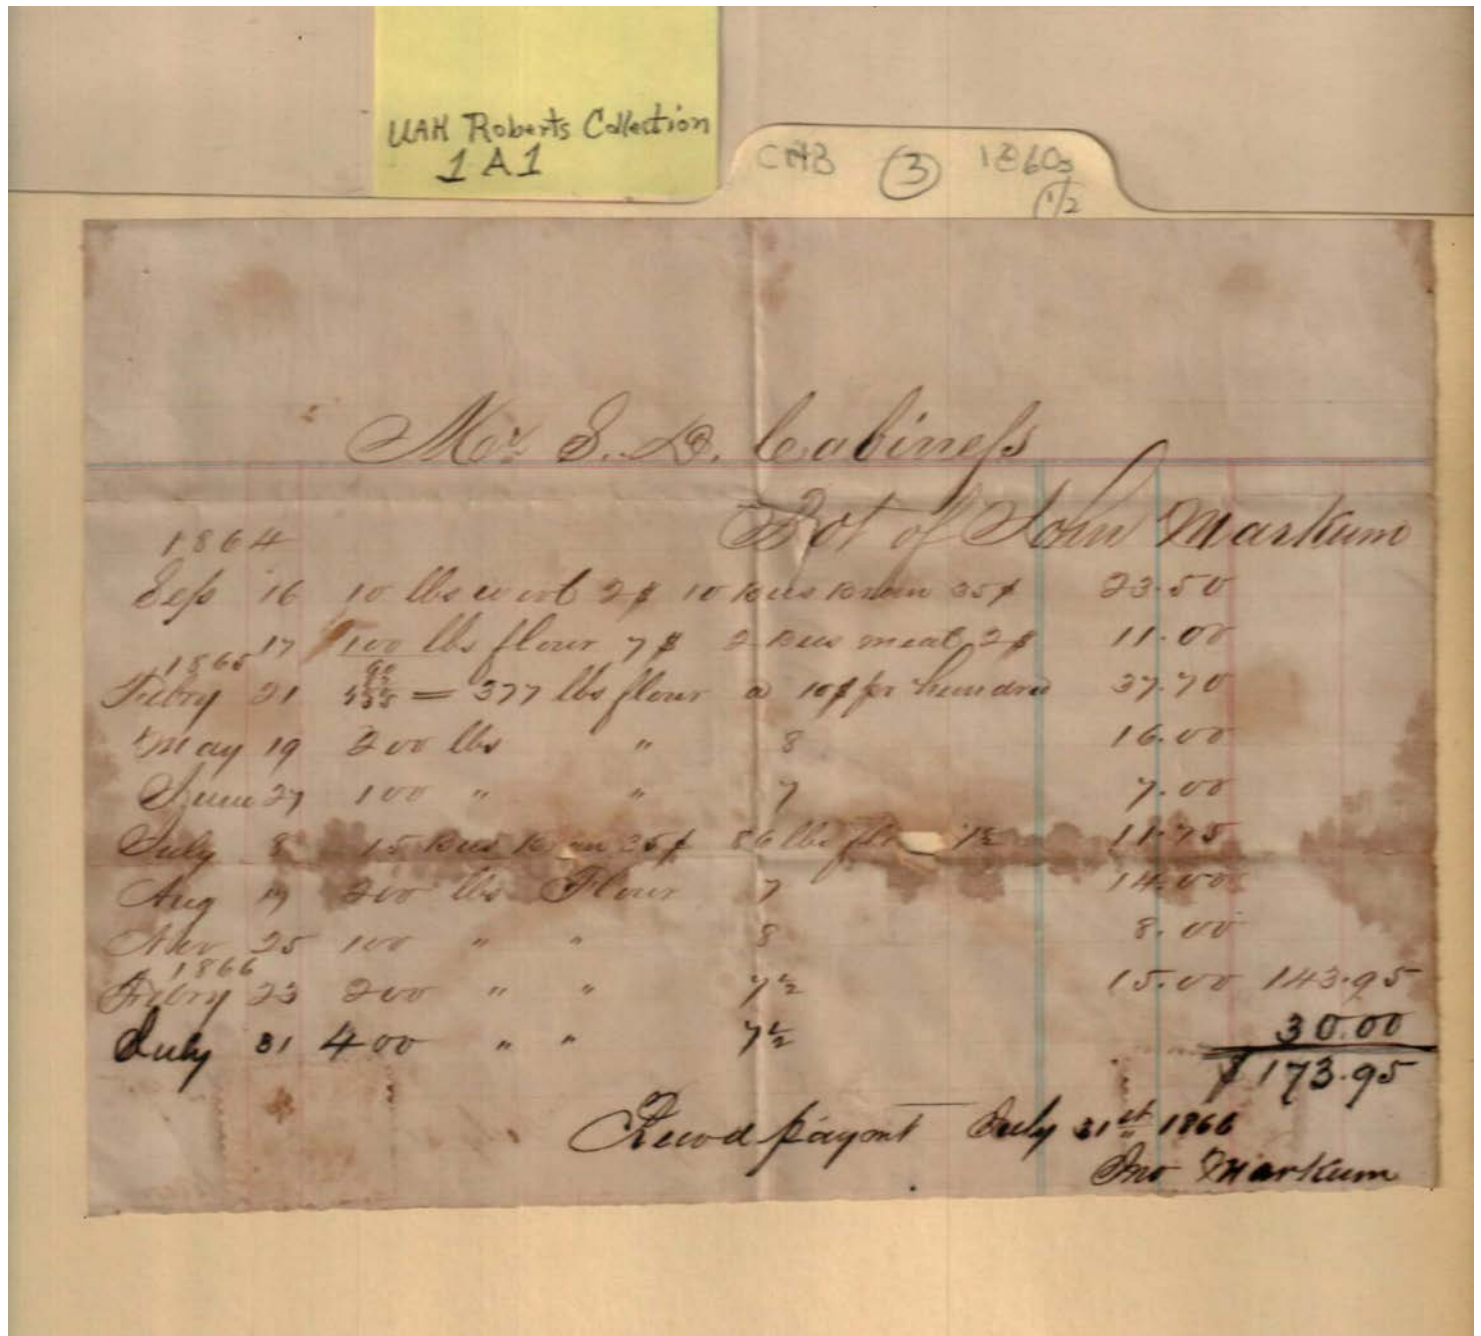 UAH Roberts Collection
1 A1
CAB ③ 1860s
1/2
Mr. S. D. Cabiness
Bot of John Markum
1864
16 10 lbs wool 2$ 10 Bus Bran 35¢ 23.50
17 100 lbs flour 7$ 2 Bus meal 2$ 11.00
1865
Febry 21 = 377 lbs flour a 10$ pr hundrd 37.70
May 19 200 lbs " 8 16.00
June 27 100 " " 7 7.00
July 8 15 Bus Bran 35¢ 86 lbs 7½ 11.75
Aug 19 200 lbs Flour 7 14.00
Nov 25 100 " " 8 8.00
1866
Febry 23 200 " " 7½ 15.00 143.95
July 31 400 " " 7½ 30.00
$173.95
Recvd paymt July 31st 1866
Jno Markum